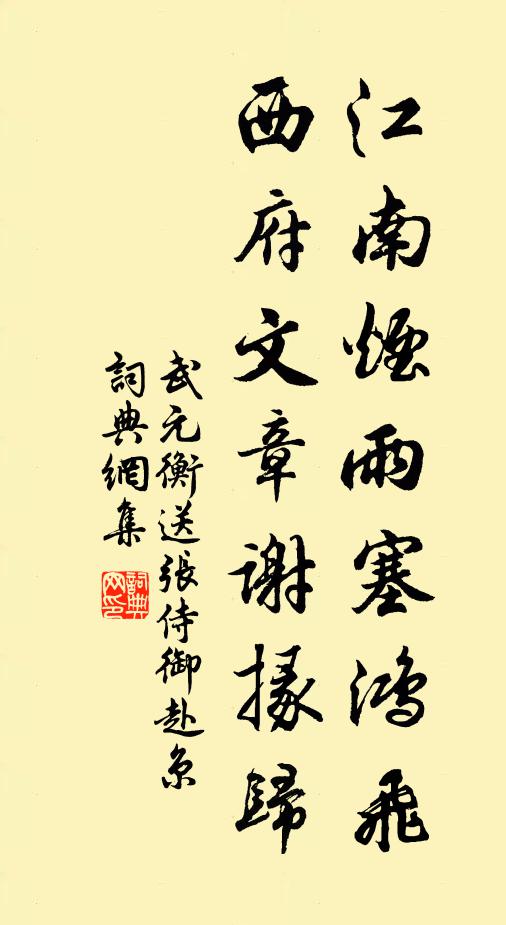 江南煙雨塞鴻飛
西府文章謝掾歸
武元衡送張侍御赴京
詞典網集
詞典網印